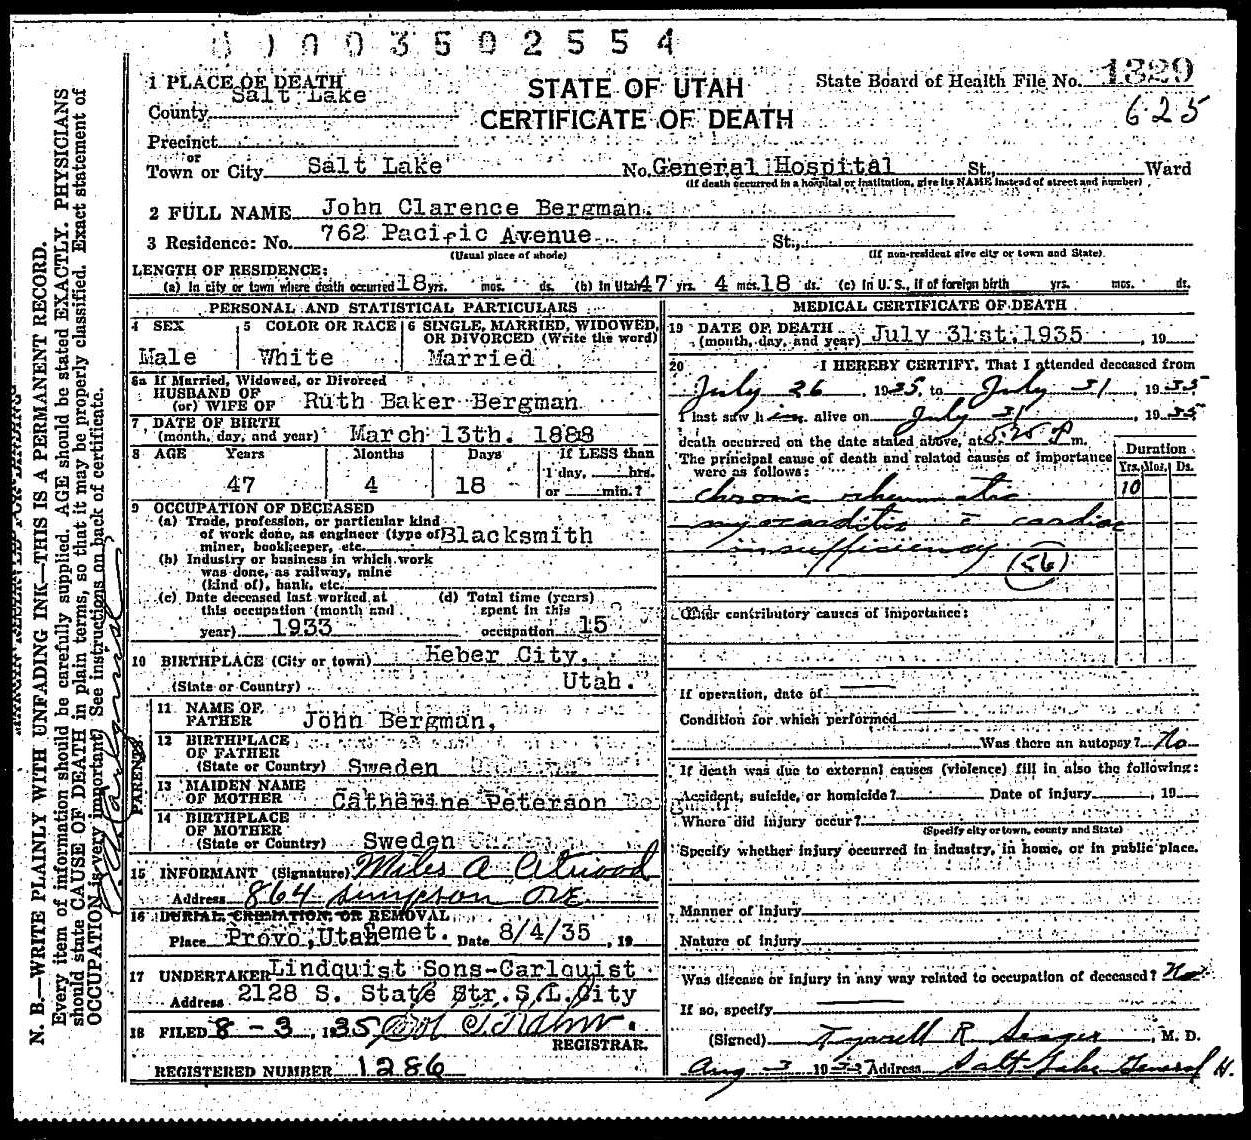 0 1 0 0 3 5 0 2 5 5 4
1 PLACE OF DEATH
STATE OF UTAH
CERTIFICATE OF DEATH
State Board of Health File No. 1329
625
County Salt Lake
Precinct
or
Town or City Salt Lake No. General Hospital St., Ward
(If death occurred in a hospital or institution, give its NAME instead of street and number)
2 FULL NAME John Clarence Bergman.
3 Residence: No. 762 Pacific Avenue St.,
(Usual place of abode) (If non-resident give city or town and State).
LENGTH OF RESIDENCE:
(a) In city or town where death occurred 18 yrs. mos. ds. (b) In Utah 47 yrs. 4 mos. 18 ds. (c) In U. S., if of foreign birth yrs. mos. ds.
PERSONAL AND STATISTICAL PARTICULARS
4 SEX
Male
5 COLOR OR RACE
White
6 SINGLE, MARRIED, WIDOWED,
OR DIVORCED (Write the word)
Married
6a If Married, Widowed, or Divorced
HUSBAND OF
(or) WIFE OF Ruth Baker Bergman
7 DATE OF BIRTH
(month, day, and year) March 13th. 1888
8 AGE Years Months Days If LESS than
1 day, hrs.
47 4 18 or min.?
9 OCCUPATION OF DECEASED
(a) Trade, profession, or particular kind
of work done, as engineer (type of) Blacksmith
miner, bookkeeper, etc.
(b) Industry or business in which work
was done, as railway, mine
(kind of), bank, etc.
(c) Date deceased last worked at
this occupation (month and
year) 1933
(d) Total time (years)
spent in this
occupation 15
10 BIRTHPLACE (City or town) Heber City,
(State or Country) Utah.
PARENTS
11 NAME OF
FATHER John Bergman,
12 BIRTHPLACE
OF FATHER
(State or Country) Sweden
13 MAIDEN NAME
OF MOTHER Catharine Peterson
14 BIRTHPLACE
OF MOTHER
(State or Country) Sweden
15 INFORMANT (Signature) Miles A Atwood
Address 864 Simpson Ave
16 BURIAL, CREMATION, OR REMOVAL
Place Provo, Utah Cemet. Date 8/4/35, 19
17 UNDERTAKER Lindquist Sons-Carlquist
Address 2128 S. State Str. S.L. City
18 FILED 8-3, 1935
REGISTRAR.
REGISTERED NUMBER 1286
MEDICAL CERTIFICATE OF DEATH
19 DATE OF DEATH
(month, day, and year) July 31st. 1935, 19
20 I HEREBY CERTIFY, That I attended deceased from
July 26, 1935, to July 31, 1935
I last saw him alive on July 31, 1935
death occurred on the date stated above, at 5:25 P m.
The principal cause of death and related causes of importance
were as follows:
Duration
Yrs. Mos. Ds.
chronic rheumatic 10
myocarditis c̄ cardiac
insufficiency (56)
Other contributory causes of importance:
If operation, date of
Condition for which performed
Was there an autopsy? No
If death was due to external causes (violence) fill in also the following:
Accident, suicide, or homicide? Date of injury, 19
Where did injury occur?
(Specify city or town, county and State)
Specify whether injury occurred in industry, in home, or in public place.
Manner of injury
Nature of injury
Was disease or injury in any way related to occupation of deceased? No
If so, specify
(Signed) Tyrrell R. Seager, M. D.
Aug 3 19 Address Salt Lake General H.
N. B.—WRITE PLAINLY WITH UNFADING INK—THIS IS A PERMANENT RECORD.
Every item of information should be carefully supplied. AGE should be stated EXACTLY. PHYSICIANS
should state CAUSE OF DEATH in plain terms, so that it may be properly classified. Exact statement of
OCCUPATION is very important. See instructions on back of certificate.